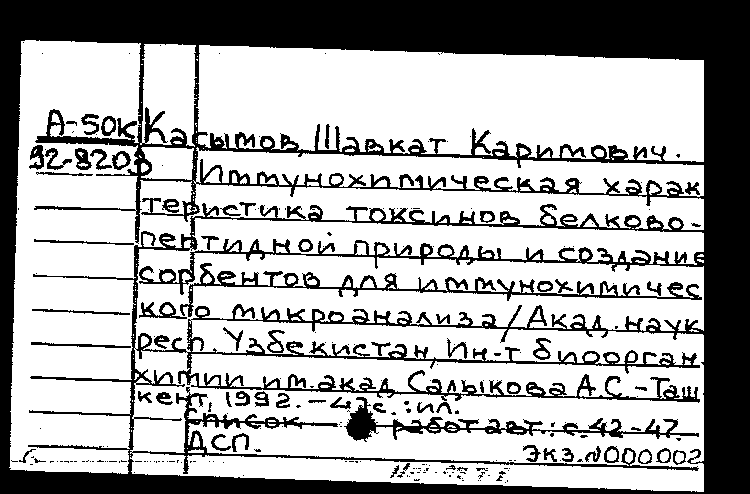 А-50к Касымов, Шавкат Каримович.
92-8203 Иммунохимическая харак
теристика токсинов белково-
пептидной природы и создание
сорбентов для иммунохимичес
кого микроанализа/Акад. наук
респ. Узбекистан, Ин-т биоорган.
химии им. акад. Садыкова А.С.-Таш
кент, 1992. - 47с. : ил.
Список работ авт.: с. 42-47.
ДСП. Экз. №000002